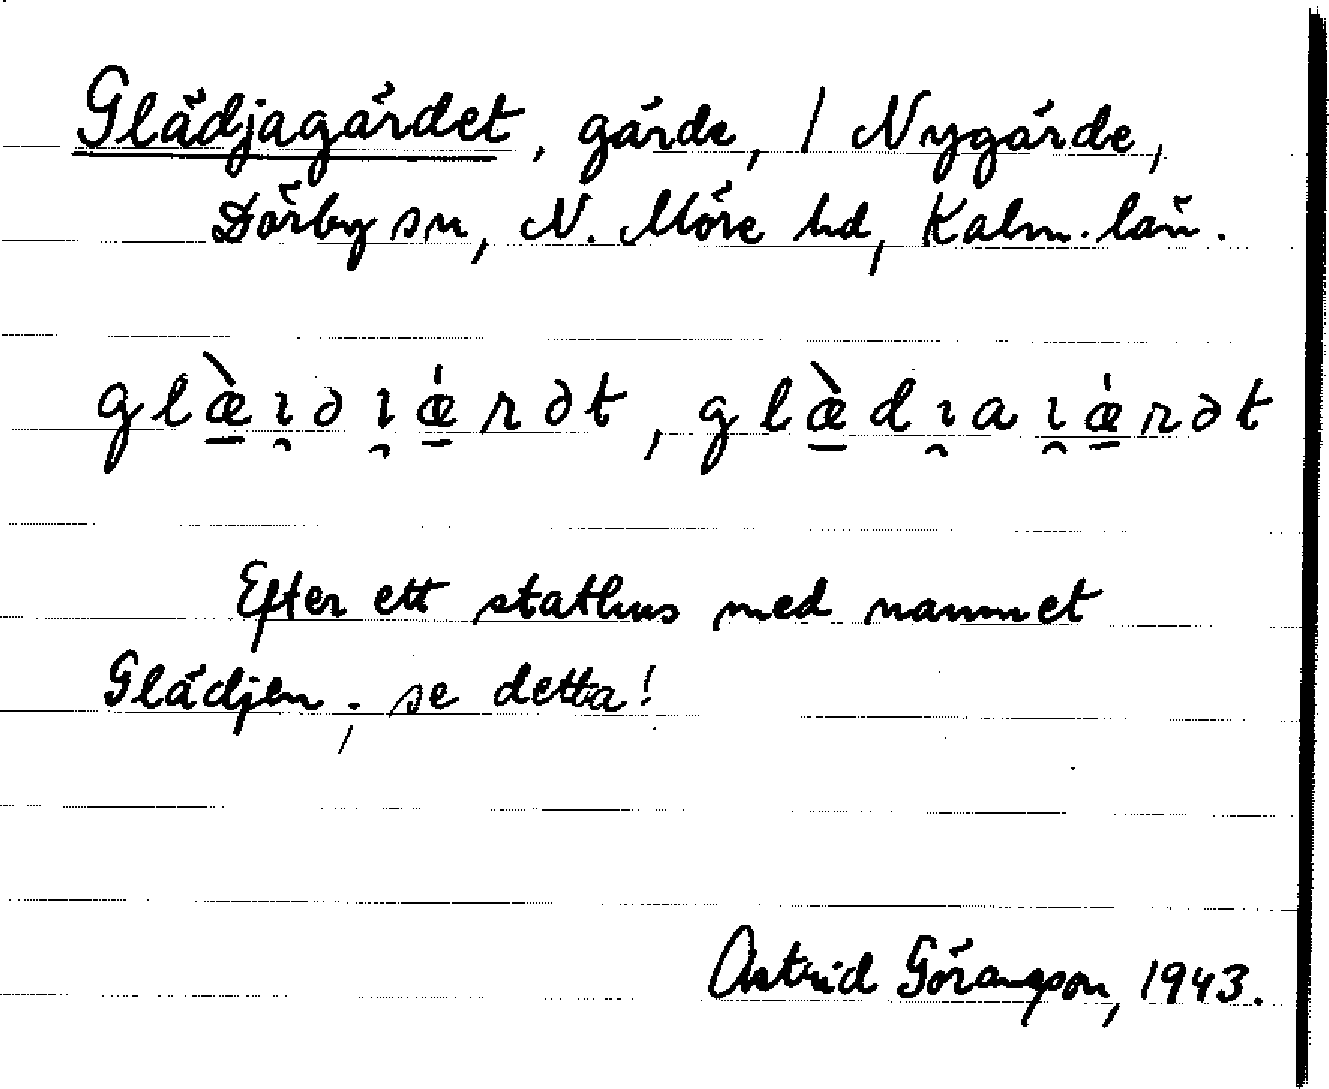 Glädjagärdet, gärde, / Nygärde,
Dörby sn, N. Möre hd, Kalm. län.
glæ̠̀ı̯əı̯ǽ̠rət, glæ̠̀dı̯aı̯ǽ̠rət
Efter ett stathus med namnet
Glädjen; se detta!
Astrid Göransson, 1943.